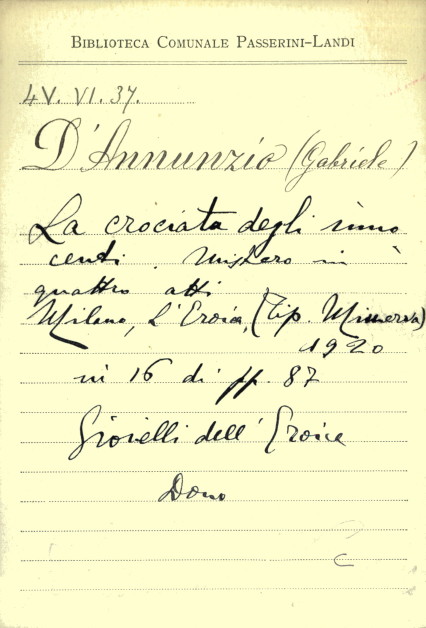 BIBLIOTECA COMUNALE PASSERINI-LANDI
4V. VI. 37.
D'Annunzio (Gabriele)
La crociata degli inno
centi. Mistero in
quattro atti
Milano, L'Eroica, (Tip. Minerva)
1920
in 16 di pp. 87
Gioielli dell'Eroica
Dono